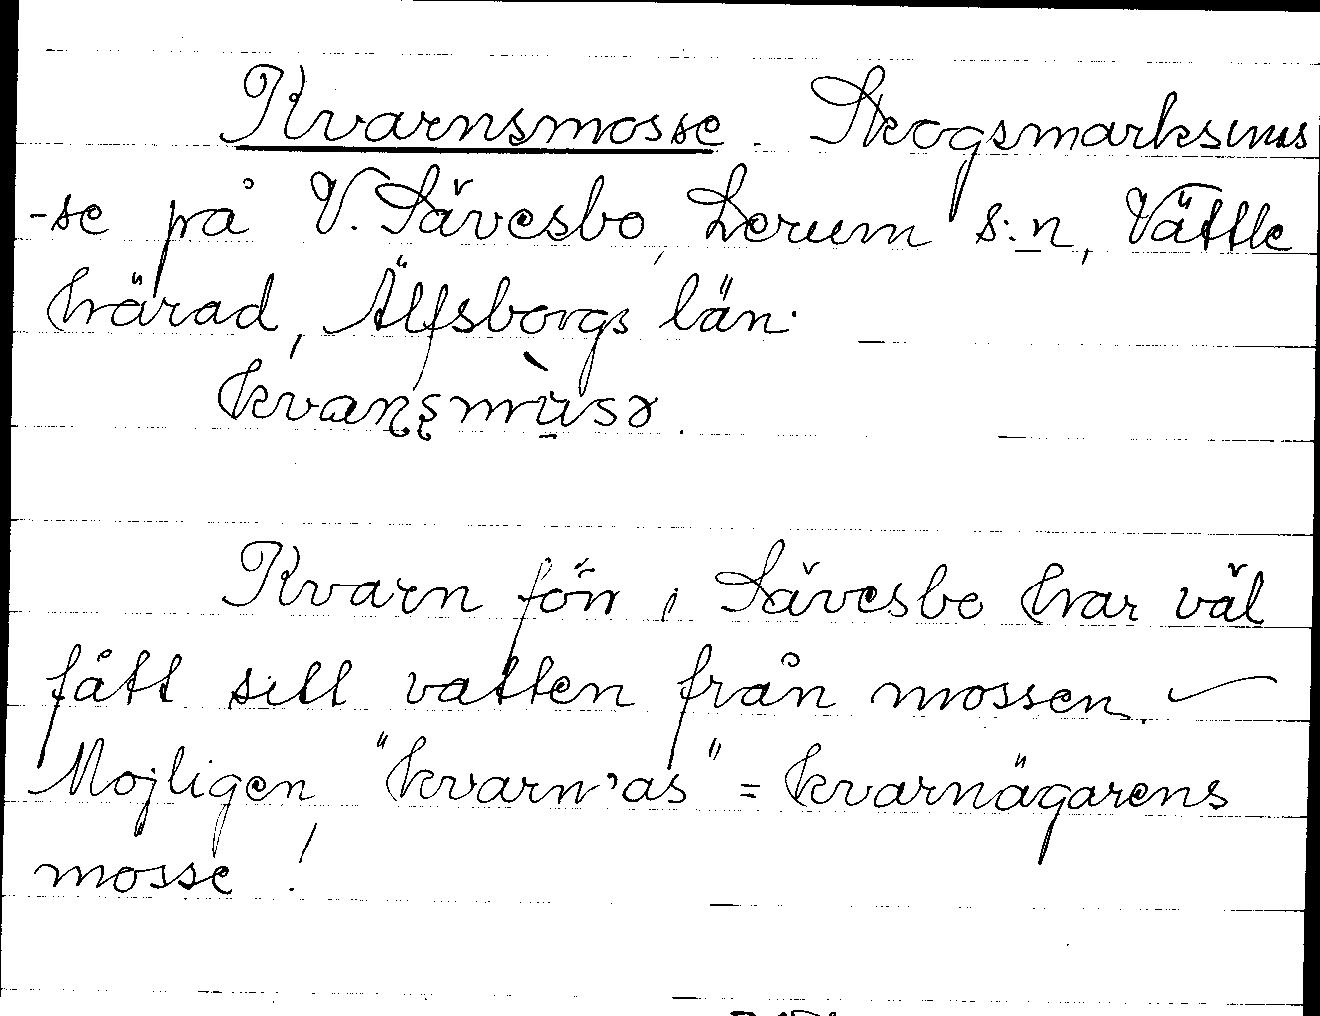 Kvarnsmosse. Skogsmarksmos
-se på V. Sävesbo, Lerum s:n, Vättle
härad, Älfsborgs län.
kvaɳʂmùsə.
Kvarn förr i Sävesbo har väl
fått sitt vatten från mossen.
Mojligen "kvarn'as" = kvarnägarens
mosse!